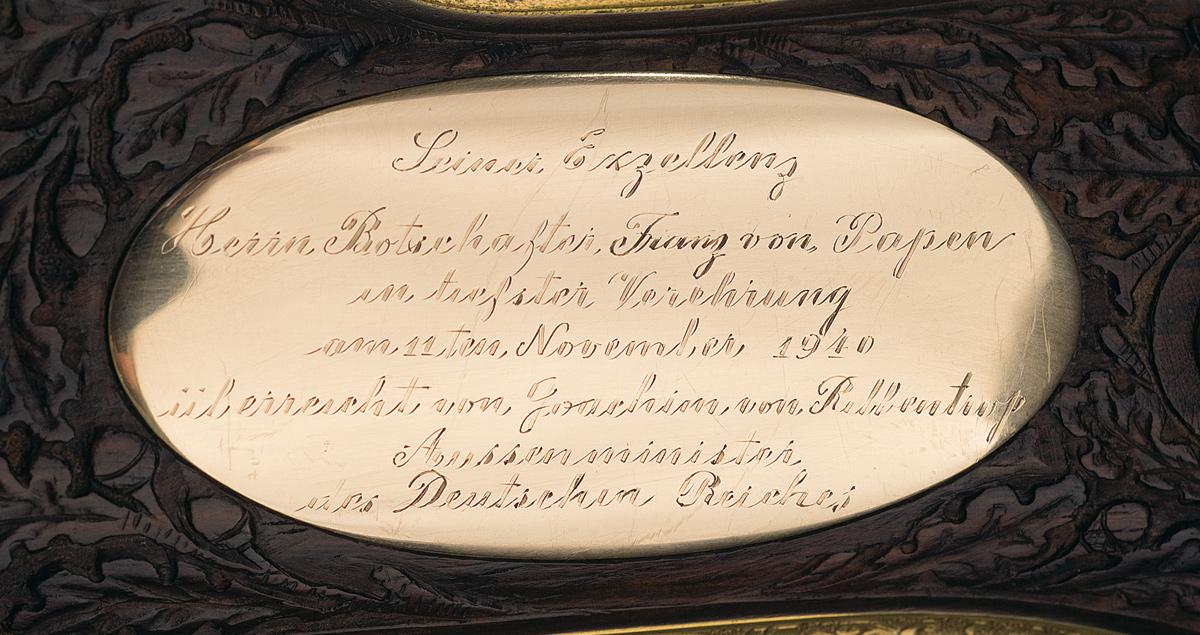 Seiner Exzellenz
Herrn Botschafter Franz von Papen
in tiefster Verehrung
am 11ten November 1940
überreicht von Joachim von Ribbentrop
Aussenminister
des Deutschen Reiches